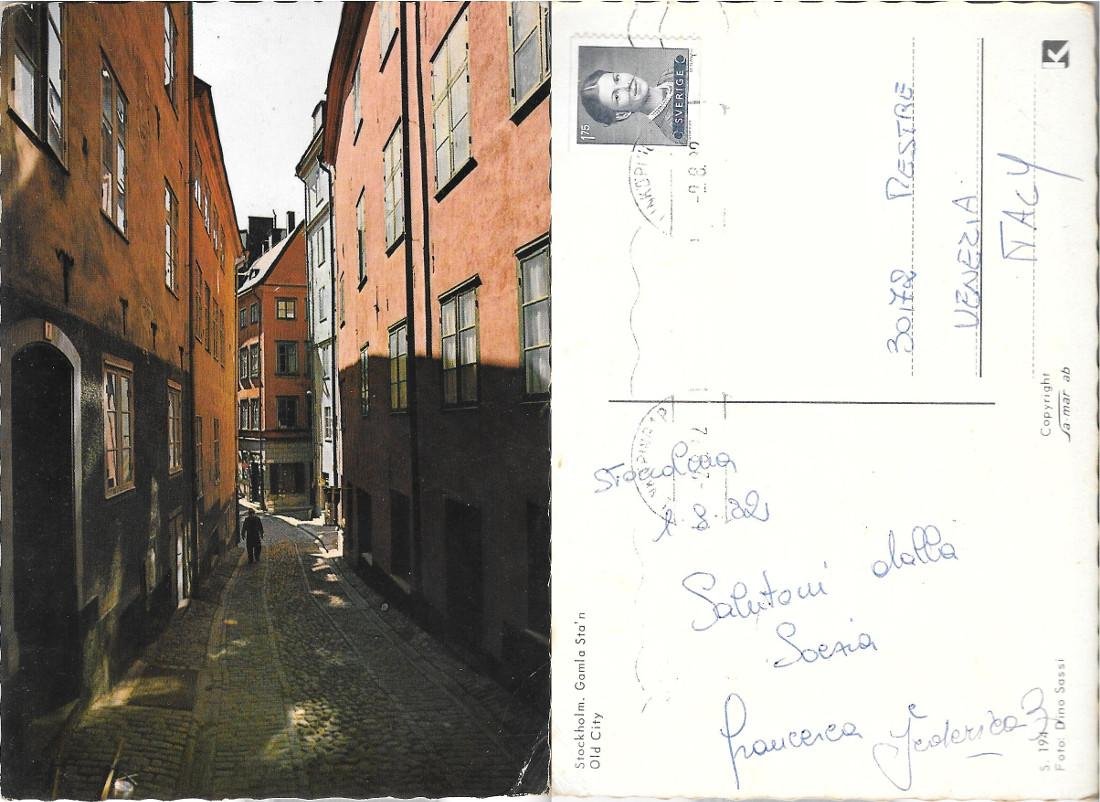 SVERIGE
1.75
30172 MESTRE
VENEZIA
ITALY
Stoccolma
1.8.82
Salutoni dalla
Svezia
Francesca Federica
Stockholm. Gamla Sta'n
Old City
Foto: Dino Sassi
Copyright
Sa-mar ab
K